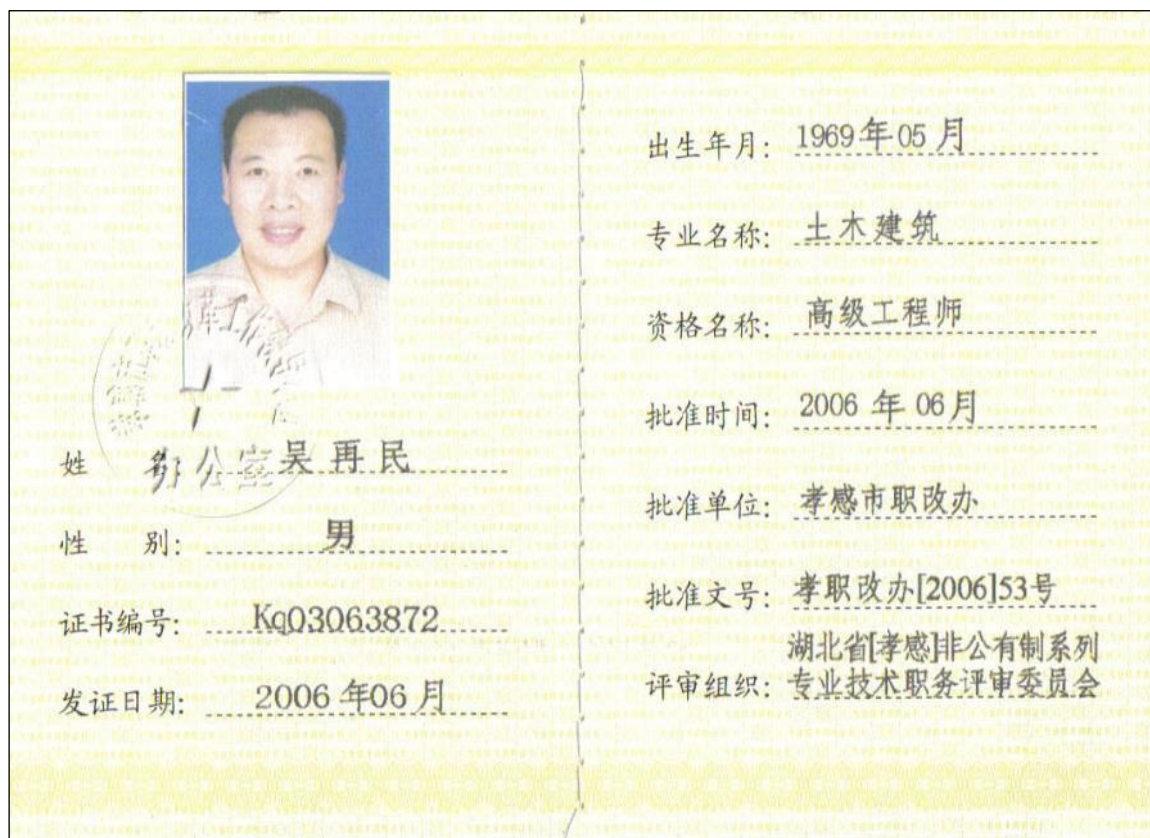 姓 吴再民
性 别： 男
证书编号： Kq03063872
发证日期： 2006年06月
办公室
出生年月： 1969年05月
专业名称： 土木建筑
资格名称： 高级工程师
批准时间： 2006年06月
批准单位： 孝感市职改办
批准文号： 孝职改办[2006]53号
湖北省[孝感]非公有制系列
评审组织： 专业技术职务评审委员会